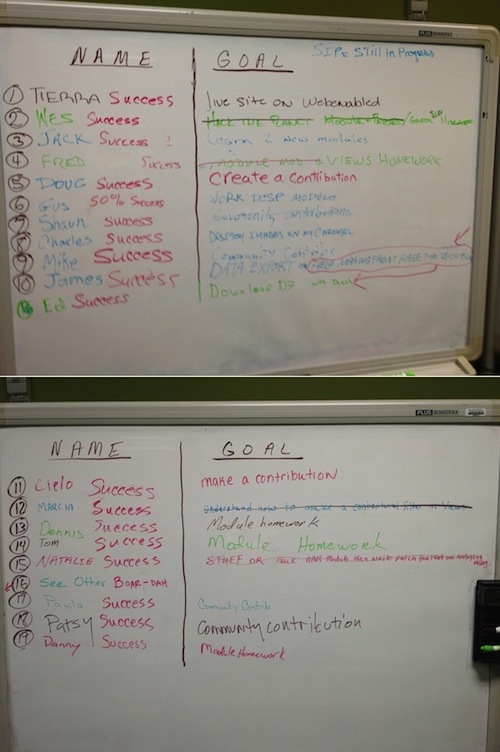 PLUS BOARDFAX
NAME GOAL SIPE Still In Progress
1 TIERRA Success live site on Webenabled
2 WES Success HACK THE PLANET
3 JACK Success ? Learn 2 new modules
4 FRED Success VIEWS HOMEWORK
5 DOUG Success Create a Contribution
6 Gus 50% Success WORK DISP MODULE
7 Shaun Success Community Contributions
8 Charles Success DISPLAY IMAGES IN MY CAROUSEL
9 Mike Success Community Contribs
10 James Success DATA EXPORT or
Ed Success Download D7
PLUS BOARDFAX
NAME GOAL
11 Cielo Success make a contribution
12 MARCIA Success Understand how to make a contextual filter in Views
13 Dennis Success Module homework
14 Tom Success Module Homework
15 NATALIE Success
16 See Other BOAR-DAH
17 Paula Success Community Contrib
18 Patsy Success Community contribution
19 Danny Success Module Homework